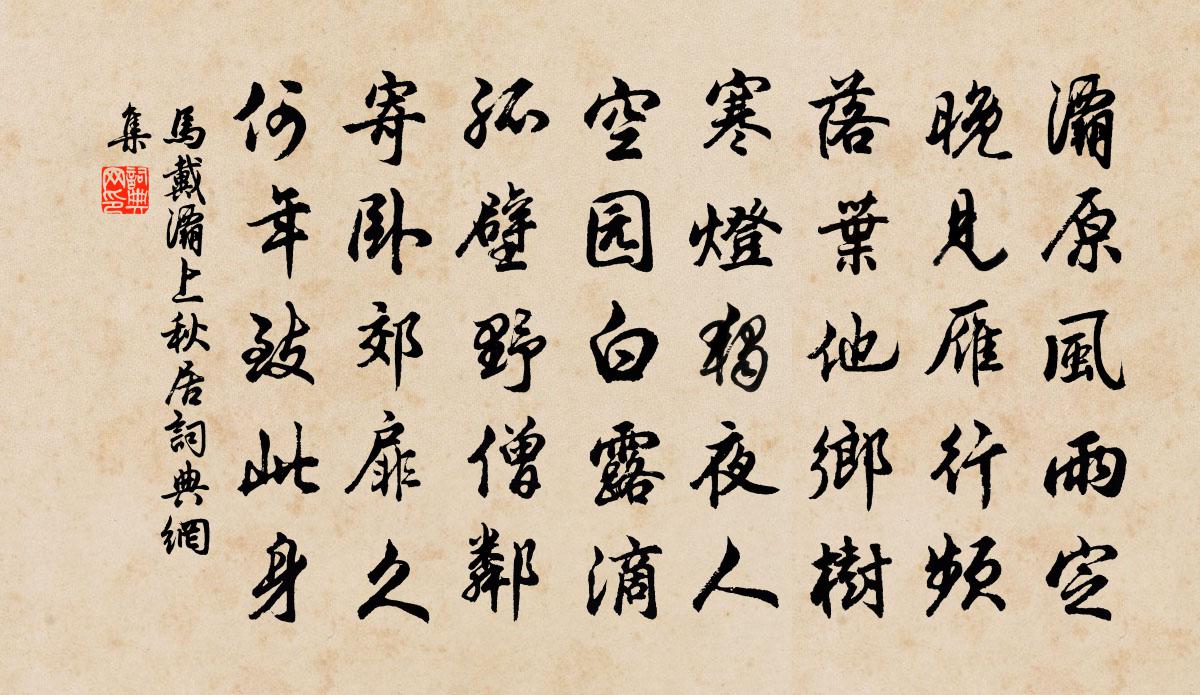 灞原風雨定
晚見雁行頻
落葉他鄉樹
寒燈獨夜人
空园白露滴
孤壁野僧鄰
寄臥郊扉久
何年致此身
馬戴灞上秋居詞典網
集
詞典
网印